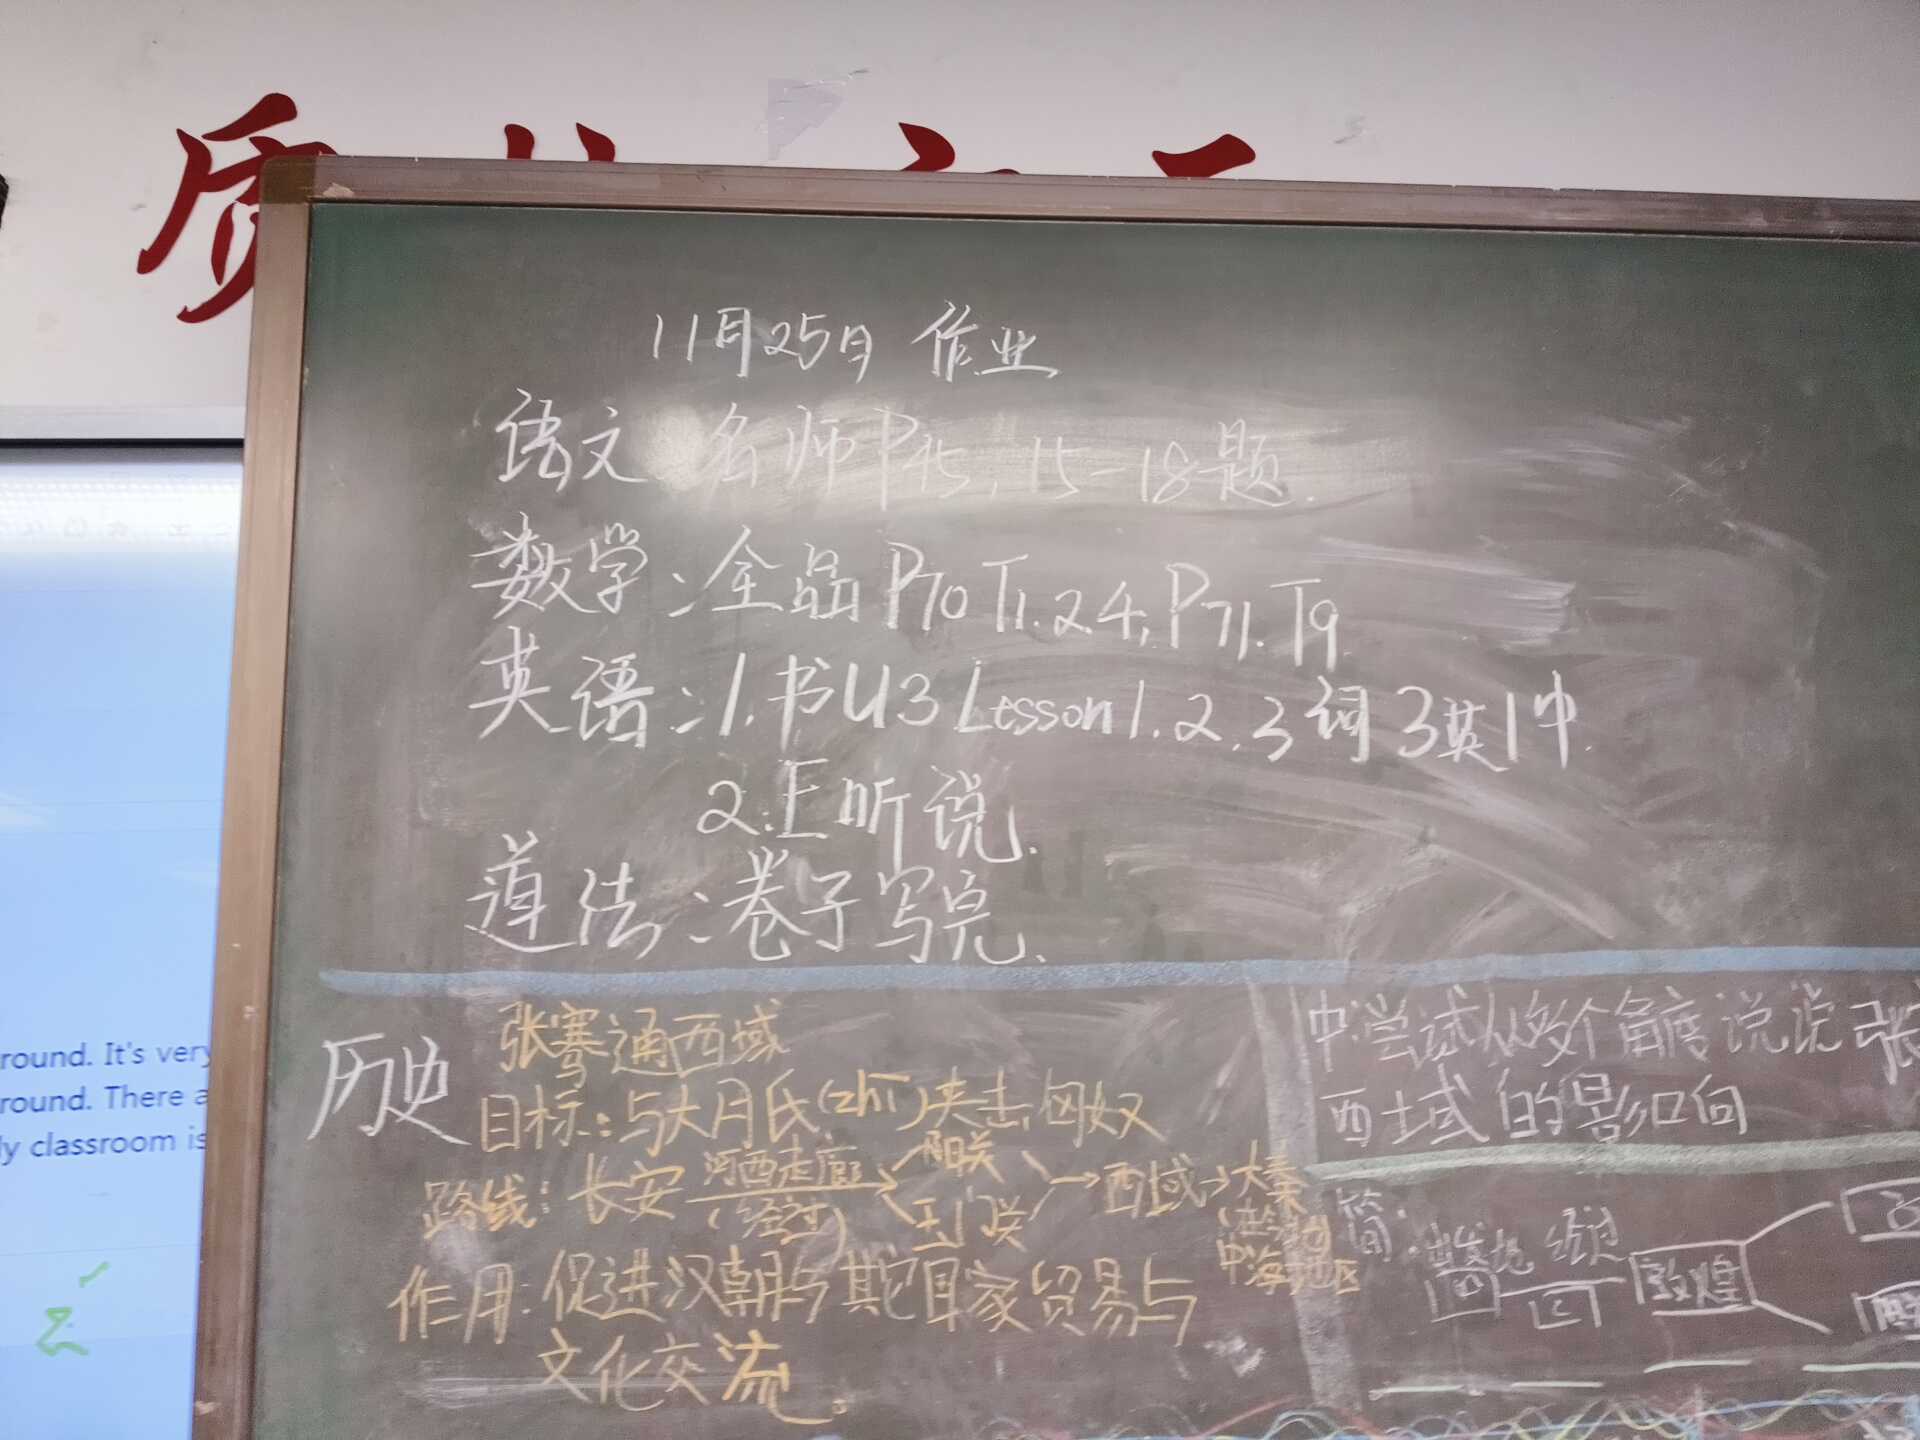 11月25日 作业
语文 名师P45, 15-18题.
数学:全品P70 T1.2.4, P71. T9.
英语:1.书U3 Lesson1.2.3词3英1中.
2.E听说.
道法:卷子写完.
历史
张骞通西域
目标:与大月氏(zhī)夹击匈奴
路线:长安 河西走廊 (经过) 阳关 玉门关 →西域→大秦
中海地区
作用:促进汉朝与其它国家贸易与
文化交流。
中:尝试从多个角度说说张
西域的影响
简: 出发地 经过
敦煌
round. It's very
round. There a
ly classroom is